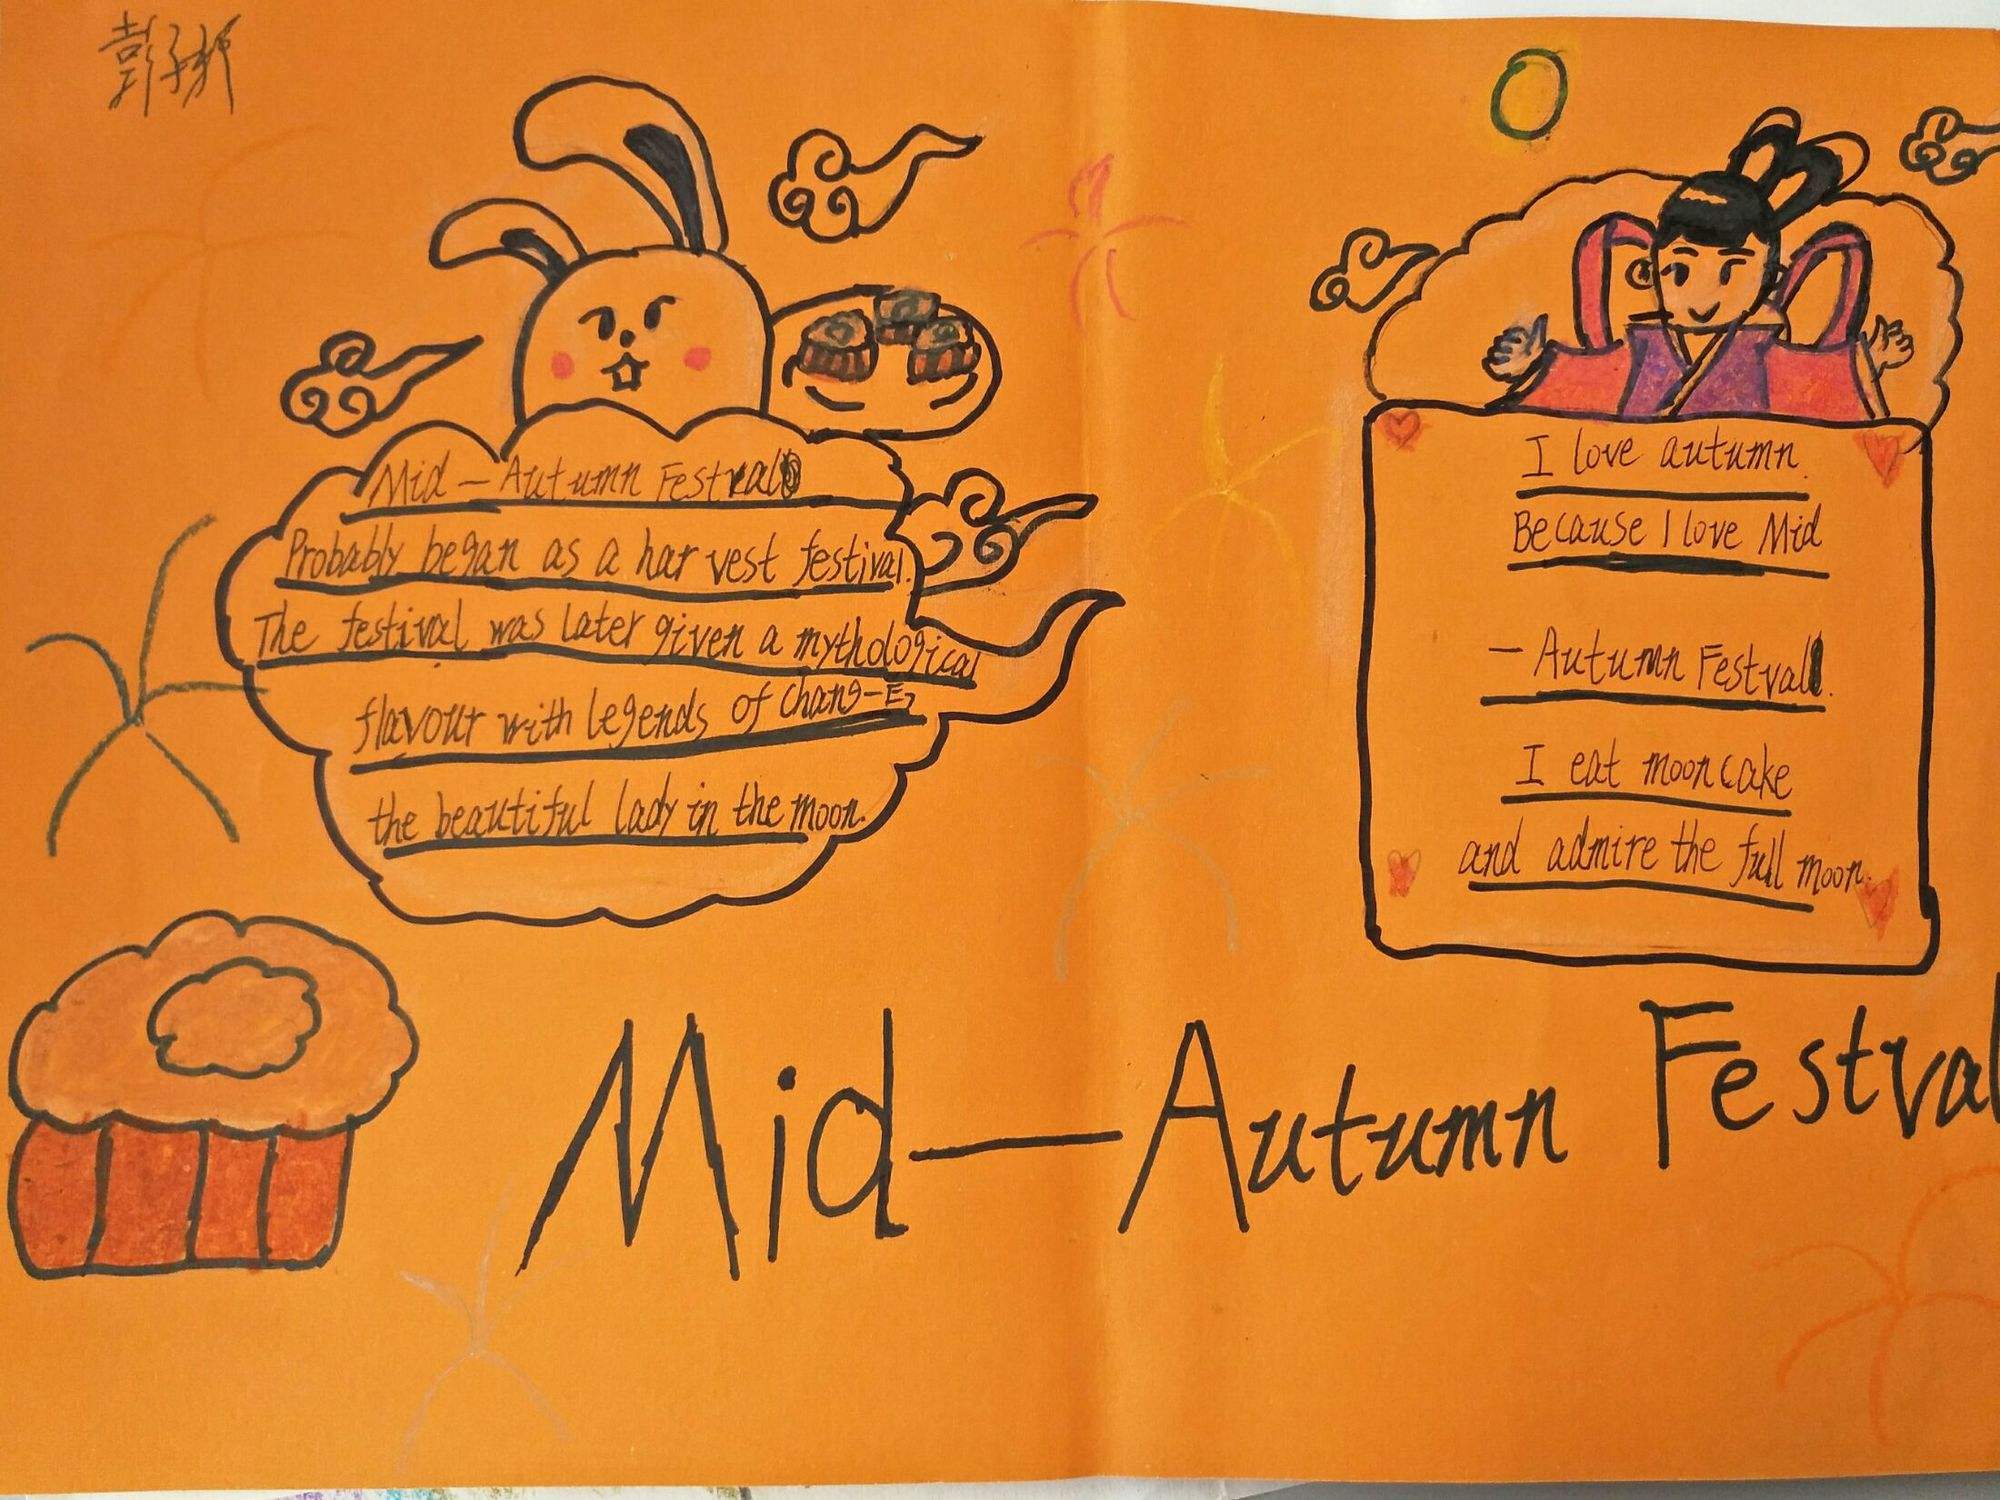 彭子
Mid-Autumn Festval
Probably began as a harvest festival.
The festival was later given a mythological
flavour with legends of Chang-E,
the beautiful lady in the moon.
I love autumn.
Because I love Mid
-Autumn Festval.
I eat mooncake
and admire the full moon.
Mid-Autumn Festval